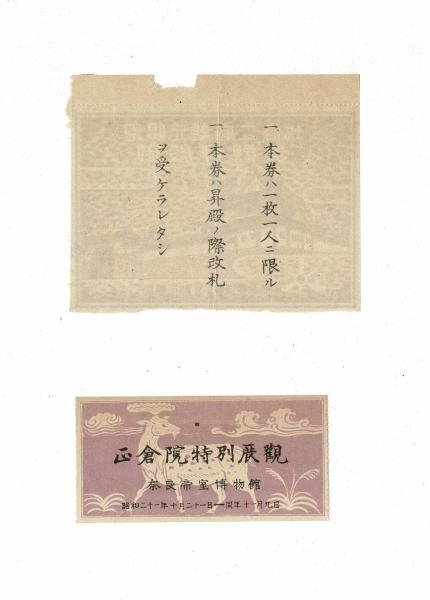 一、本券ハ一枚一人ニ限ル
一、本券ハ昇殿ノ際改札
ヲ受ケラレタシ
正倉院特別展觀
奈良帝室博物館
昭和二十一年十月二十一日—同年十一月九日